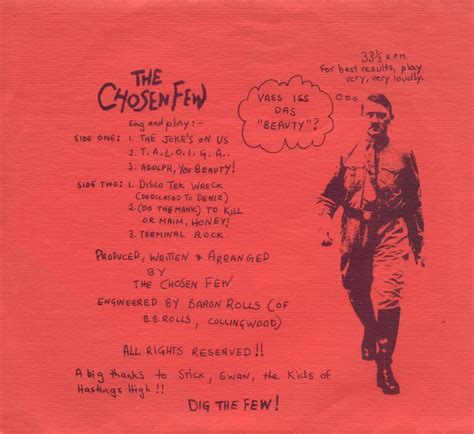 THE
CHOSEN FEW
sing and play:-
SIDE ONE: 1. THE JOKE'S ON US
2. T. A. L. O. I. G. A..
3. ADOLPH, YOU BEAUTY!
SIDE TWO: 1. DISCO TEK WRECK
(DEDICATED TO DENIZ)
2. (DO THE MANIC) TO KILL
OR MAIM, HONEY!
3. TERMINAL ROCK.
PRODUCED, WRITTEN & ARRANGED
BY
THE CHOSEN FEW
ENGINEERED BY BARON ROLLS (OF
B.B. ROLLS, COLLINGWOOD)
ALL RIGHTS RESERVED!!
A big thanks to STICK, EWAN, the Kids of
Hastings High!!
DIG THE FEW!
33⅓ R.P.M.
for best results, play
very, very loudly.
VASS ISS
DAS
"BEAUTY"?